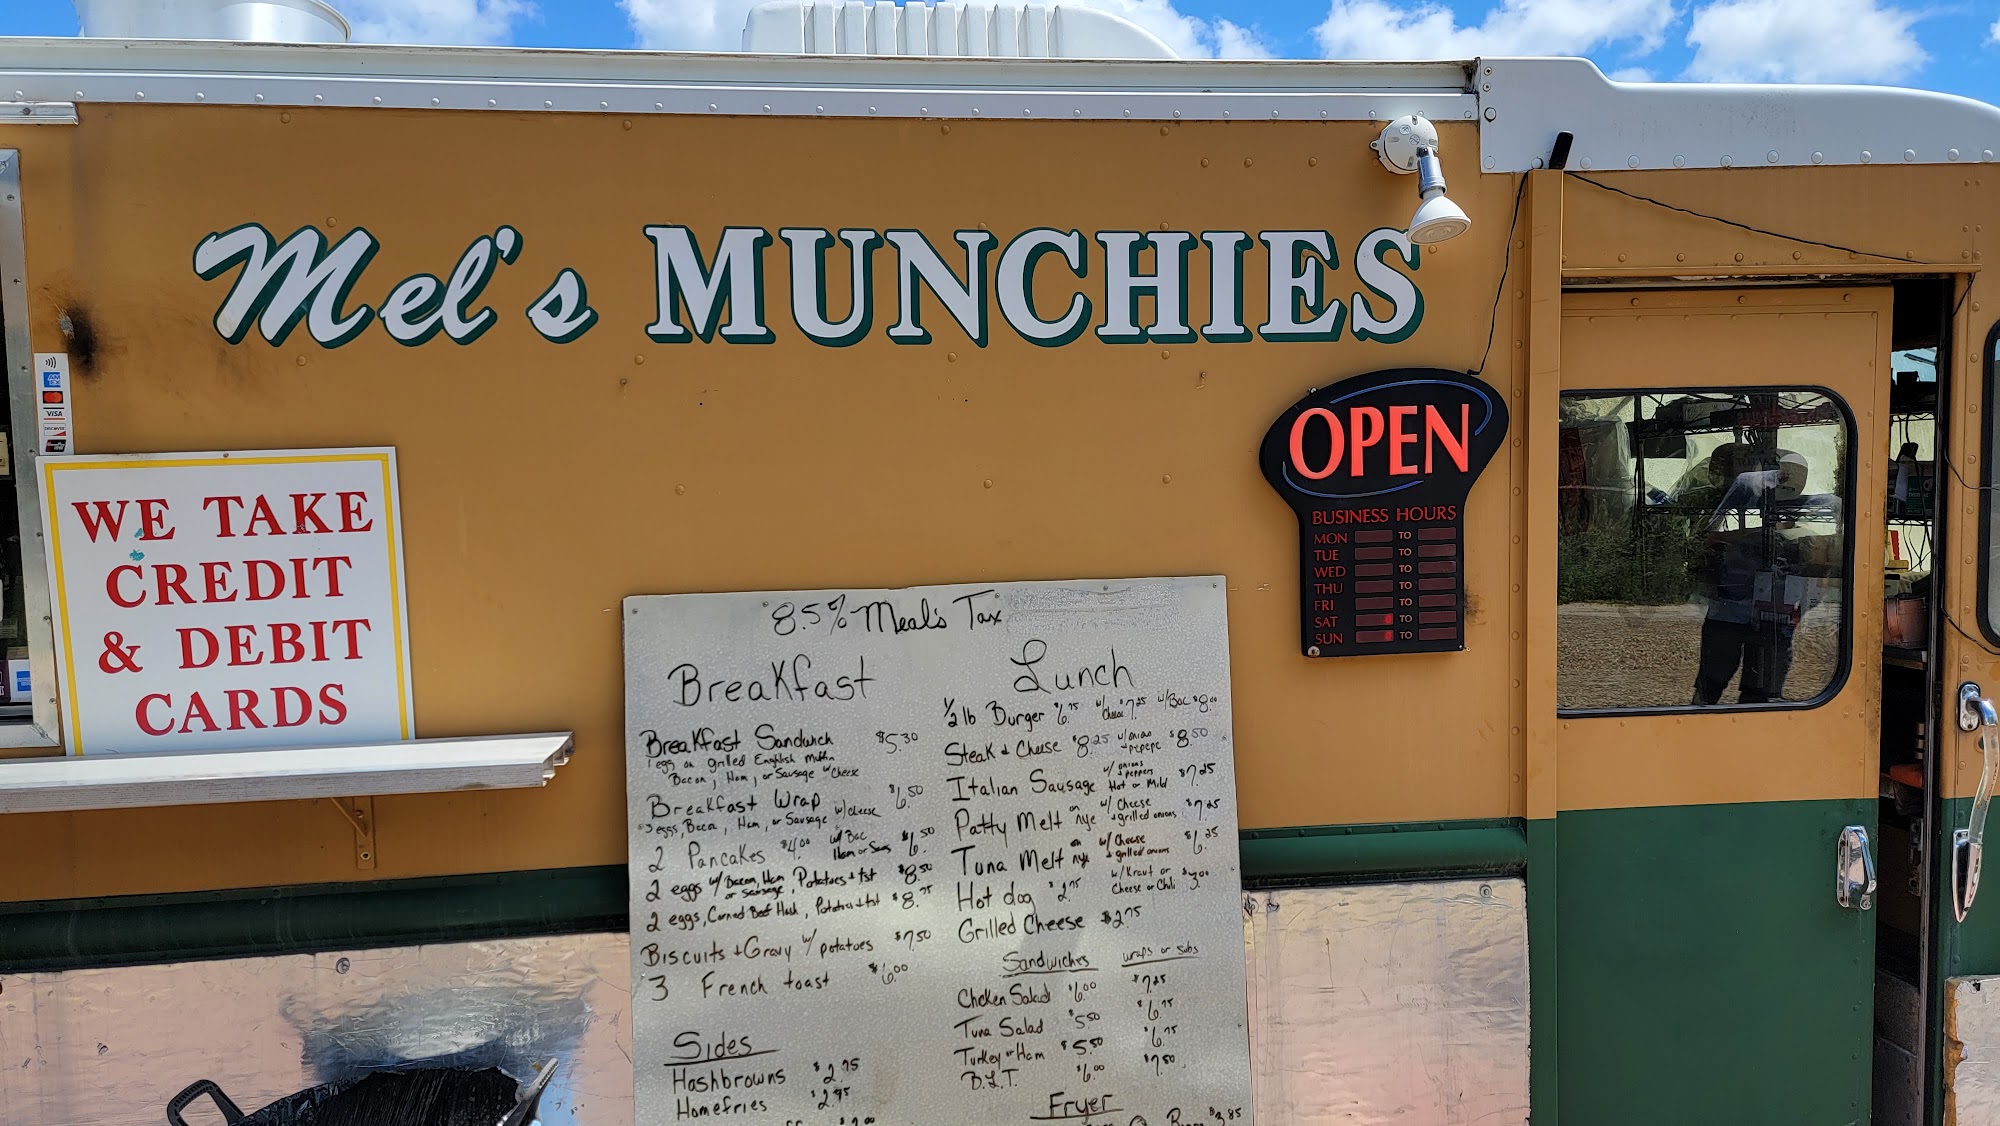 Mel's MUNCHIES
AM EX
VISA
DISCOVER
WE TAKE
CREDIT
& DEBIT
CARDS
OPEN
BUSINESS HOURS
MON TO
TUE TO
WED TO
THU TO
FRI TO
SAT TO
SUN TO
8.5% Meal's Tax
Breakfast
Breakfast Sandwich $5.30
1 egg on grilled English Muffin
Bacon, Ham, or Sausage w/cheese
Breakfast Wrap $6.50
3 eggs, Bacon, Ham, or Sausage w/cheese
2 Pancakes $4.00 w/ Bac Ham or Saus $6.50
2 eggs w/ Bacon, Ham or sausage, Potatoes + tst $8.50
2 eggs, Corned Beef Hash, Potatoes + tst $8.75
Biscuits + Gravy w/ potatoes $7.50
3 French toast $6.00
Sides
Hashbrowns $2.75
Homefries $2.75
Lunch
1/2 lb Burger $6.75 w/ Cheese $7.25 w/Bac $8.00
Steak + Cheese $8.25 w/onion + pepepe $8.50
Italian Sausage w/ onions + peppers Hot or Mild $7.25
Patty Melt on rye w/ Cheese + grilled onions $7.25
Tuna Melt on rye w/ Cheese + grilled onions $6.25
Hot dog $2.75 w/Kraut or Cheese or Chili $3.00
Grilled Cheese $2.75
Sandwiches wraps or subs
Chicken Salad $6.00 $7.25
Tuna Salad $5.50 $6.75
Turkey or Ham $5.50 $6.75
B.L.T. $6.00 $7.50
Fryer
$3.85